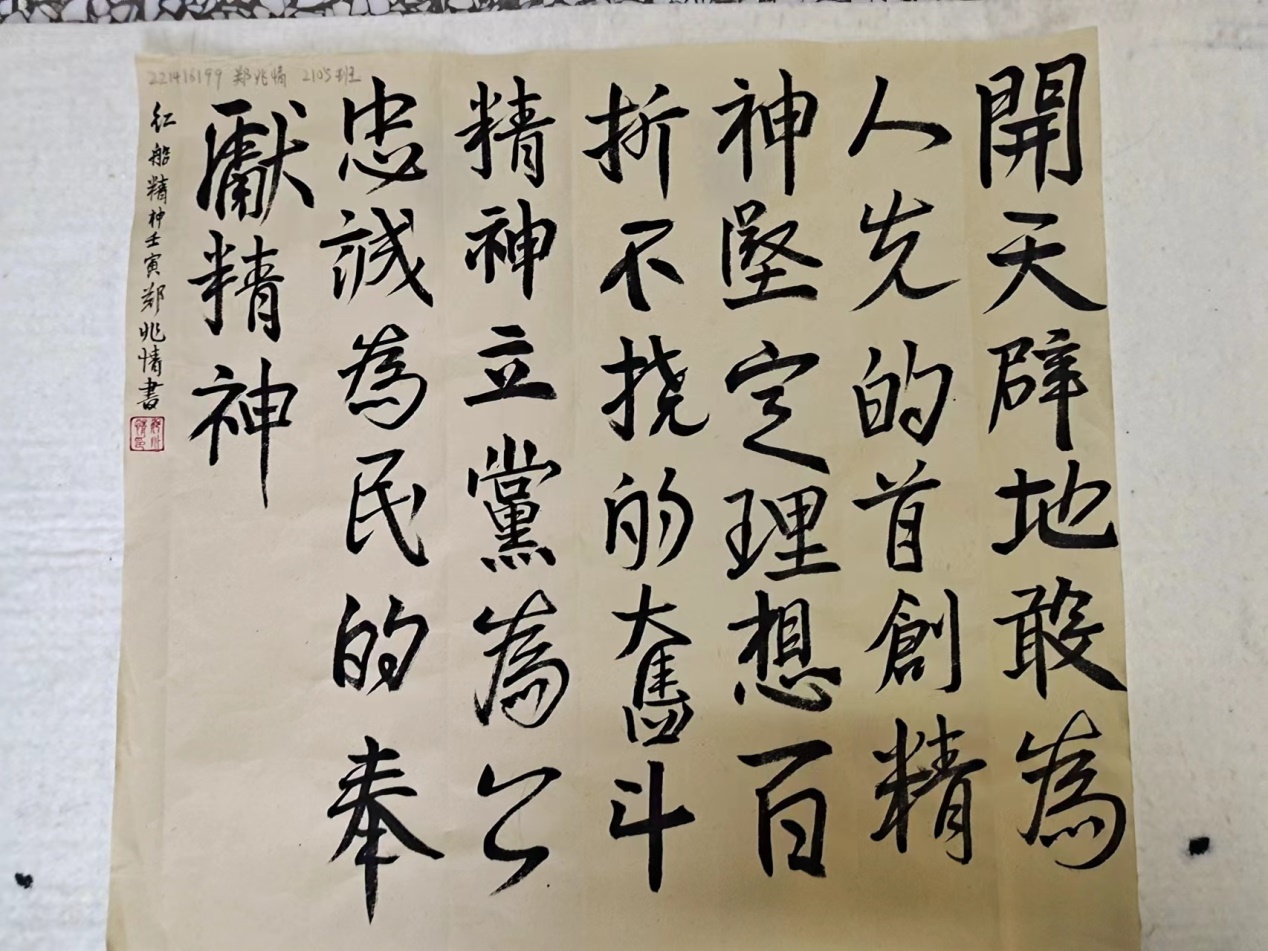 開天辟地敢為
人先的首創精
神堅定理想百
折不挠的奮斗
精神立黨為公
忠誠為民的奉
獻精神
红船精神壬寅郑兆情書
221416199 郑兆情 2105班